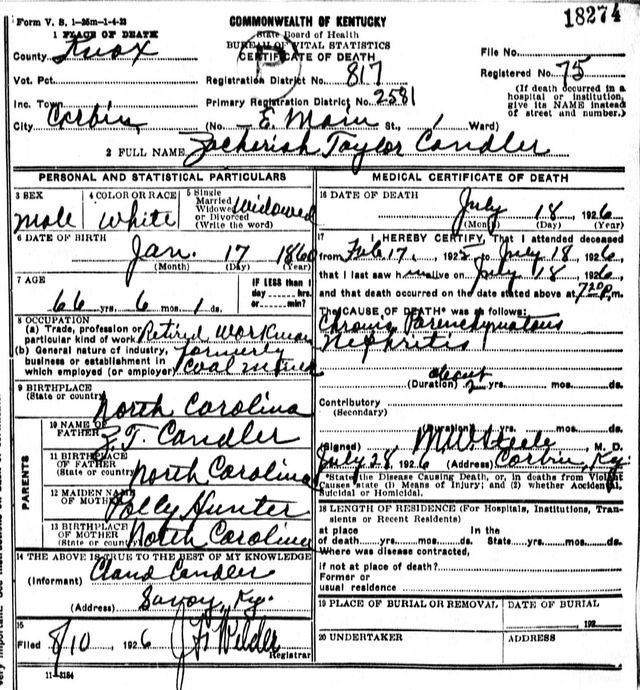 Form V. S. 1—25m—1-4-23
COMMONWEALTH OF KENTUCKY
18274
1 PLACE OF DEATH
State Board of Health
BUREAU OF VITAL STATISTICS
CERTIFICATE OF DEATH
County Knox
File No.
Vot. Pct.
Registration District No. 817
Registered No. 75
Inc. Town
Primary Registration District No. 2581
(If death occurred in a hospital or institution, give its NAME instead of street and number.)
City Corbin (No. — E. Main St., 1 Ward)
2 FULL NAME Zacheriah Taylor Candler
PERSONAL AND STATISTICAL PARTICULARS
3 SEX
male
4 COLOR OR RACE
White
5 Single
Married
Widowed
or Divorced
(Write the word)
Widowed
6 DATE OF BIRTH
Jan. 17 1860
(Month) (Day) (Year)
7 AGE
66 yrs. 6 mos. 1 ds.
IF LESS than 1
day ...... hrs.
or ...... min?
8 OCCUPATION
(a) Trade, profession or
particular kind of work Retired workman
(b) General nature of industry,
business or establishment in
which employed (or employer) formerly
Coal
9 BIRTHPLACE
(State or country)
North Carolina
PARENTS
10 NAME OF
FATHER
Z. T. Candler
11 BIRTHPLACE
OF FATHER
(State or country)
North Carolina
12 MAIDEN NAME
OF MOTHER
Polly Hunter
13 BIRTHPLACE
OF MOTHER
(State or country)
North Carolina
14 THE ABOVE IS TRUE TO THE BEST OF MY KNOWLEDGE
(Informant) Claud Candler
(Address) Savoy, Ky.
15
Filed 8/10, 1926 Wilder
Registrar
11—3184
MEDICAL CERTIFICATE OF DEATH
16 DATE OF DEATH
July 18, 1926
(Month) (Day) (Year)
17 I HEREBY CERTIFY, That I attended deceased
from Feb 17, 1925 to July 18, 1926,
that I last saw h alive on July 18, 1926,
and that death occurred on the date stated above at 7 20 p m.
The CAUSE OF DEATH* was as follows:
Chronic Parenchymatous
Nephritis
about
(Duration) 2 yrs. mos. ds.
Contributory
(Secondary)
(Duration) yrs. mos. ds.
(Signed) M. W. Steele, M. D.
July 28, 1926 (Address) Corbin, Ky.
*State the Disease Causing Death, or, in deaths from Violent
Causes state (1) Means of Injury; and (2) whether Accidental,
Suicidal or Homicidal.
18 LENGTH OF RESIDENCE (For Hospitals, Institutions, Tran-
sients or Recent Residents)
at place In the
of death.....yrs.....mos.....ds. State.....yrs.....mos.....ds.
Where was disease contracted,
if not at place of death?
Former or
usual residence
19 PLACE OF BURIAL OR REMOVAL
DATE OF BURIAL
192
20 UNDERTAKER
ADDRESS